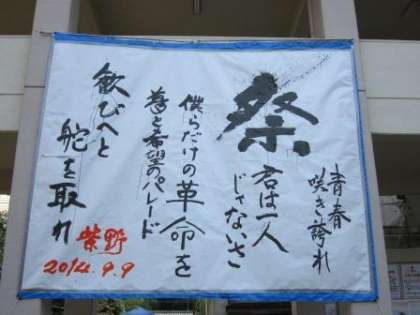 青春
咲き誇れ
祭
君は一人
じゃないさ
僕らだけの革命を
夢と希望のパレード
歓びへと
舵を取れ
紫野
2014.9.9